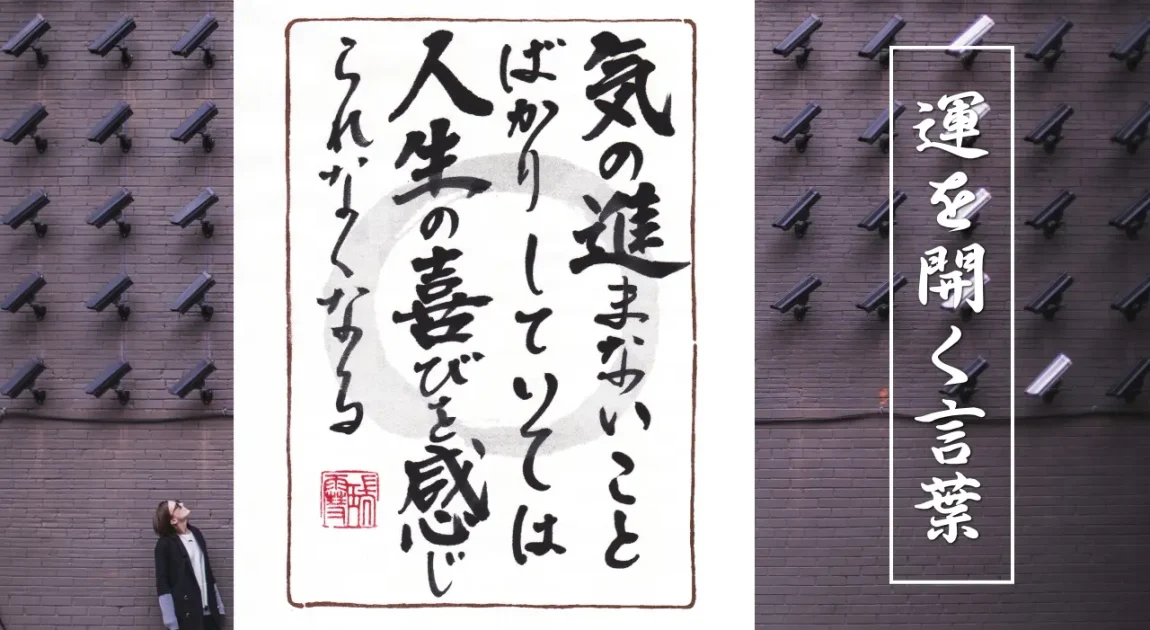 気の進まないこと
ばかりしていては
人生の喜びを感じ
られなくなる
運を開く言葉